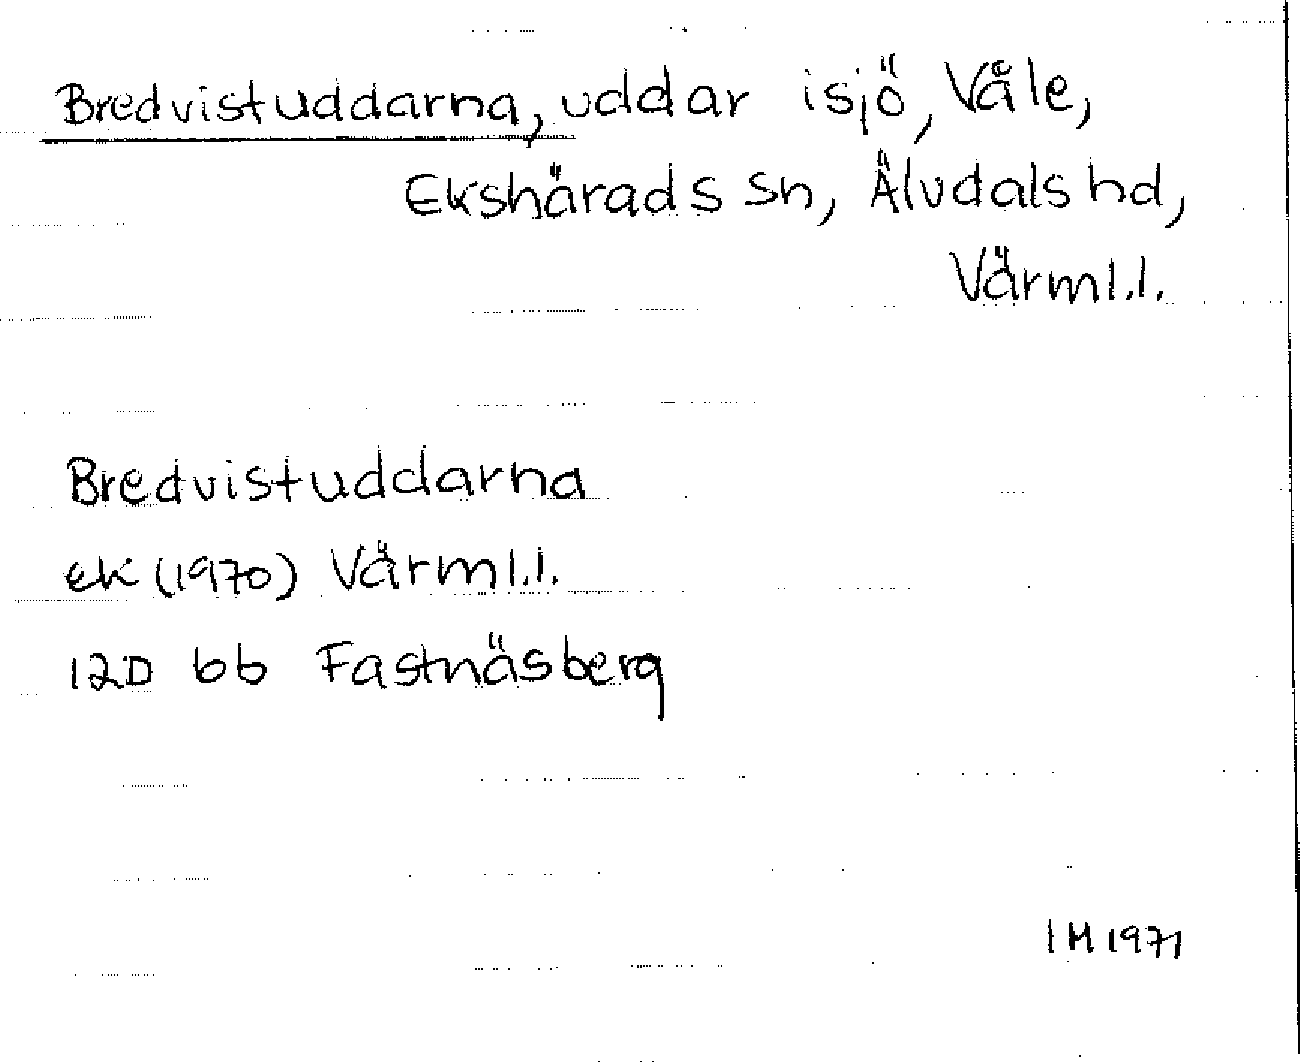 Bredvistuddarna, uddar i sjö, Våle,
Ekshärads sn, Älvdals hd,
Värml.l.
Bredvistuddarna
ek (1970) Värml.l.
12D bb Fastnäsberg
IH 1971